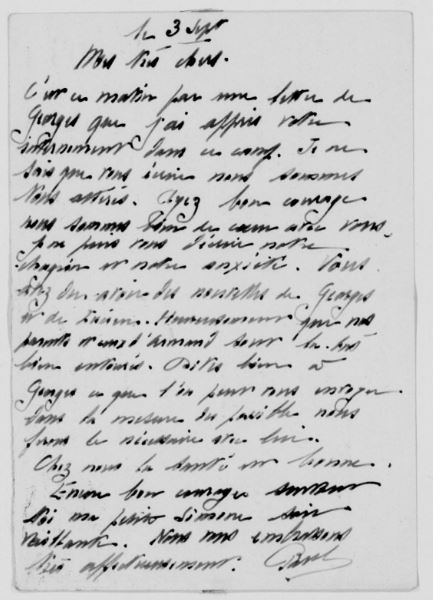 le 3 Sept
Mes très chers.
C'est ce matin par une lettre de
Georges que j'ai appris votre
internement dans ce camp. Je ne
sais que vous écrire nous sommes
tous attérés. Ayez bon courage
nous sommes bien de cœur avec vous.
Je ne peux vous décrire notre
chagrin et notre anxiété. Vous
avez du avoir des nouvelles de Georges
et de Lucien. Heureusement que nos
parents et ceux d'Armand sont là-bas
bien entourés. Dites bien à
Georges ce que l'on peut vous envoyer
dans la mesure du possible nous
ferons le nécessaire avec lui.
Chez nous la santé est bonne.
Encore bon courage surtout
toi ma petite Simone sois
vaillante. Nous vous embrassons
très affectueusement.